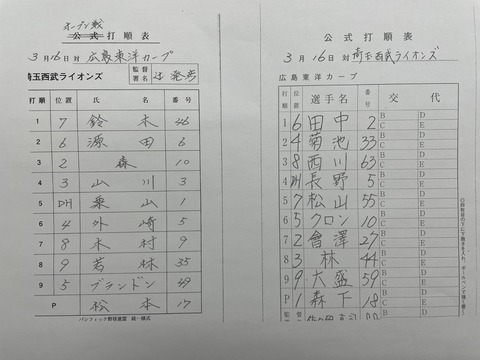 オープン戦
公式打順表
3月16日対広島東洋カープ
埼玉西武ライオンズ 監督署名
打順 位置 氏名 番号
1 7 鈴木 46
2 6 源田 6
3 2 森 10
4 3 山川 3
5 DH 栗山 1
6 4 外崎 5
7 8 木村 9
8 9 若林 35
9 5 ブランドン 49
P 松本 17
パシフィック野球連盟 統一様式
公式打順表
3月16日対埼玉西武ライオンズ
広島東洋カープ
打順 位置 選手名 交代
1 6 田中 2 B D C E
2 4 菊池 33 B D C E
3 8 西川 63 B D C E
4 DH 長野 5 B D C E
5 7 松山 55 B D C E
6 5 クロン 10 B D C E
7 2 會澤 27 B D C E
8 3 林 44 B D C E
9 9 大盛 59 B D C E
P 1 森下 18 B D C E